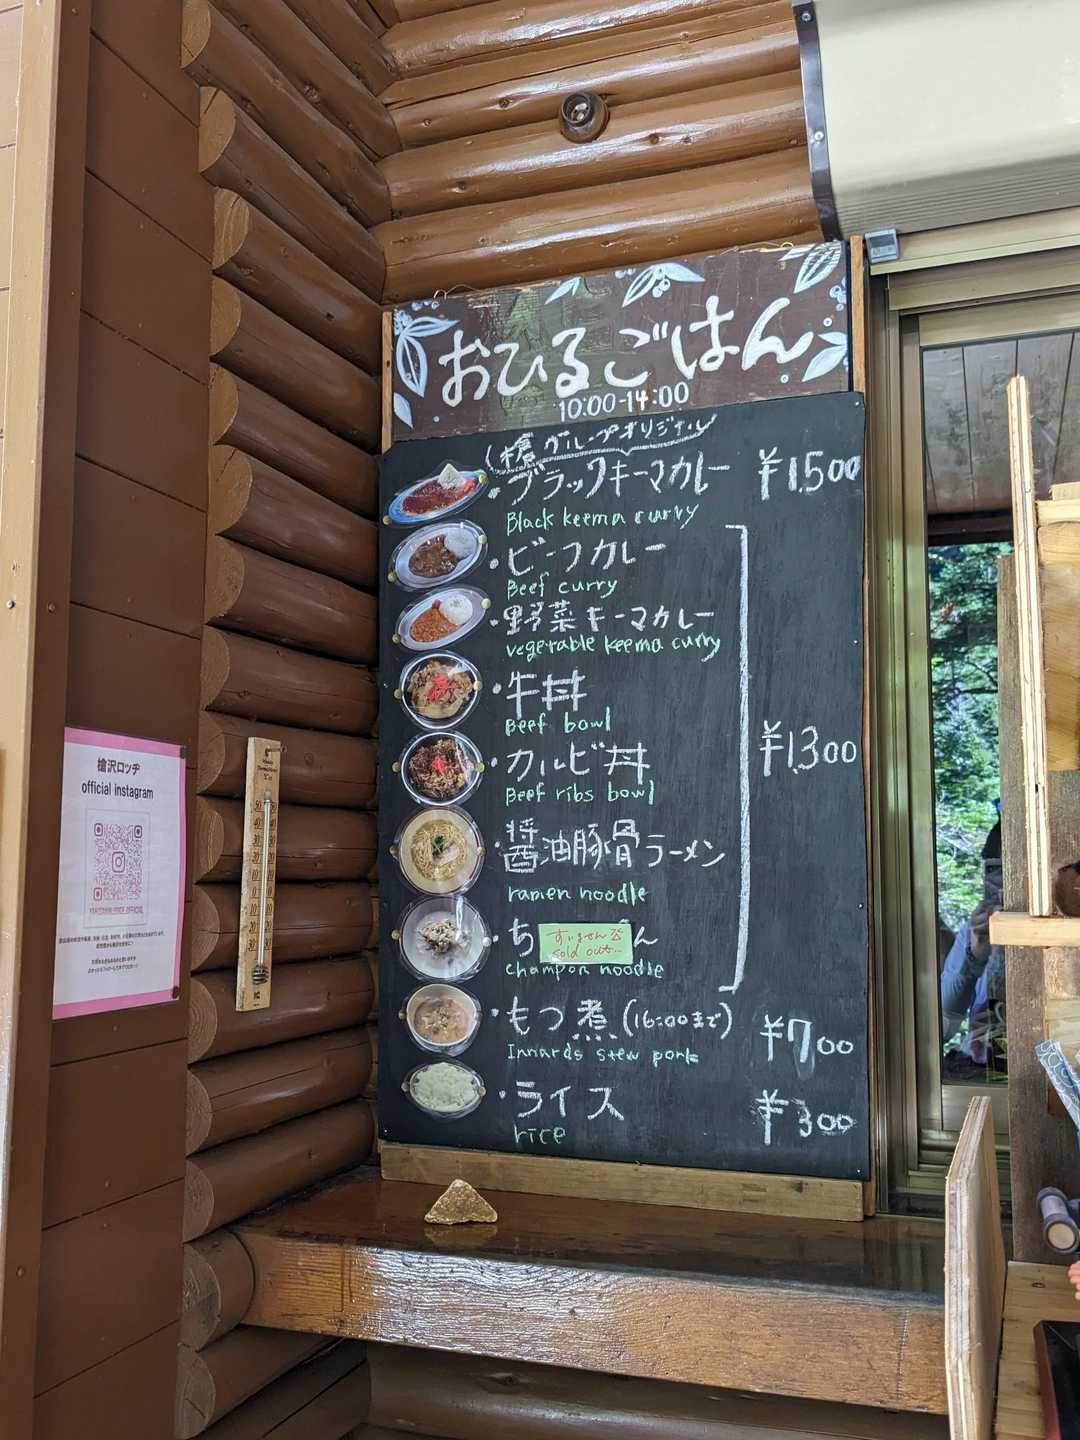 おひるごはん
10:00-14:00
槍グループオリジナル
・ブラックキーマカレー ¥1,500
Black keema curry
・ビーフカレー
Beef curry
・野菜キーマカレー
vegetable keema curry
・牛丼
Beef bowl
・カルビ丼 ¥1,300
Beef ribs bowl
・醤油豚骨ラーメン
ramen noodle
・ち ん
sold out...
champon noodle
・もつ煮(16:00まで) ¥700
Innards stew pork
・ライス ¥300
rice
槍沢ロッヂ
official instagram